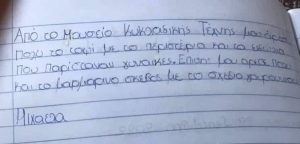 Από το Μουσείο Κυκλαδικής Τέχνης μου άρεσε
πολύ το τασί με τα περιστέρια και τα ειδώλια
που παρίσταναν γυναίκες. Επίσης μου άρεσε πολύ
και το μαρμάρινο σκεύος με το σχέδιο